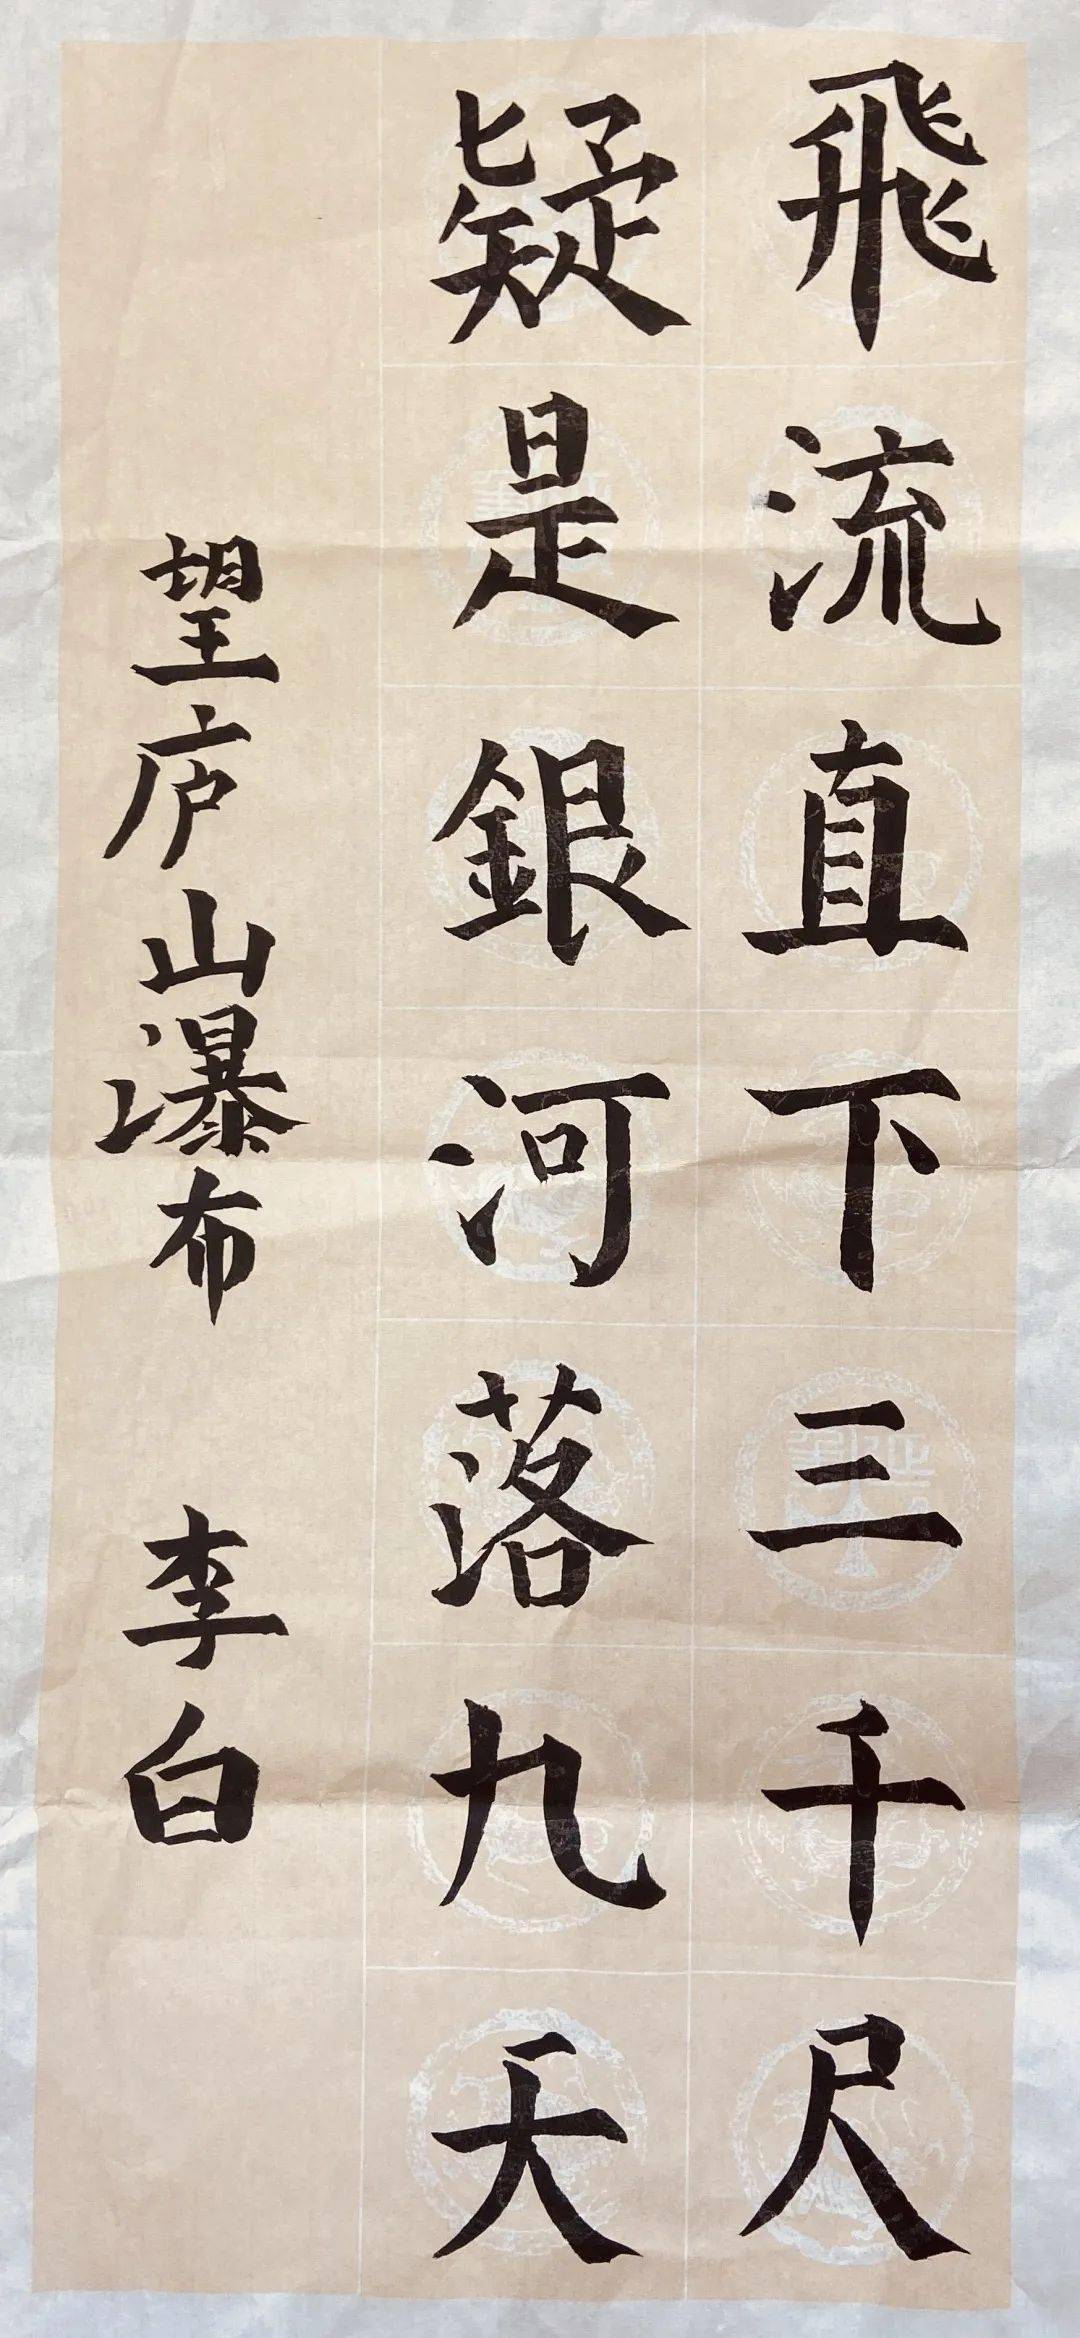 飛流直下三千尺
疑是銀河落九天
望庐山瀑布 李白